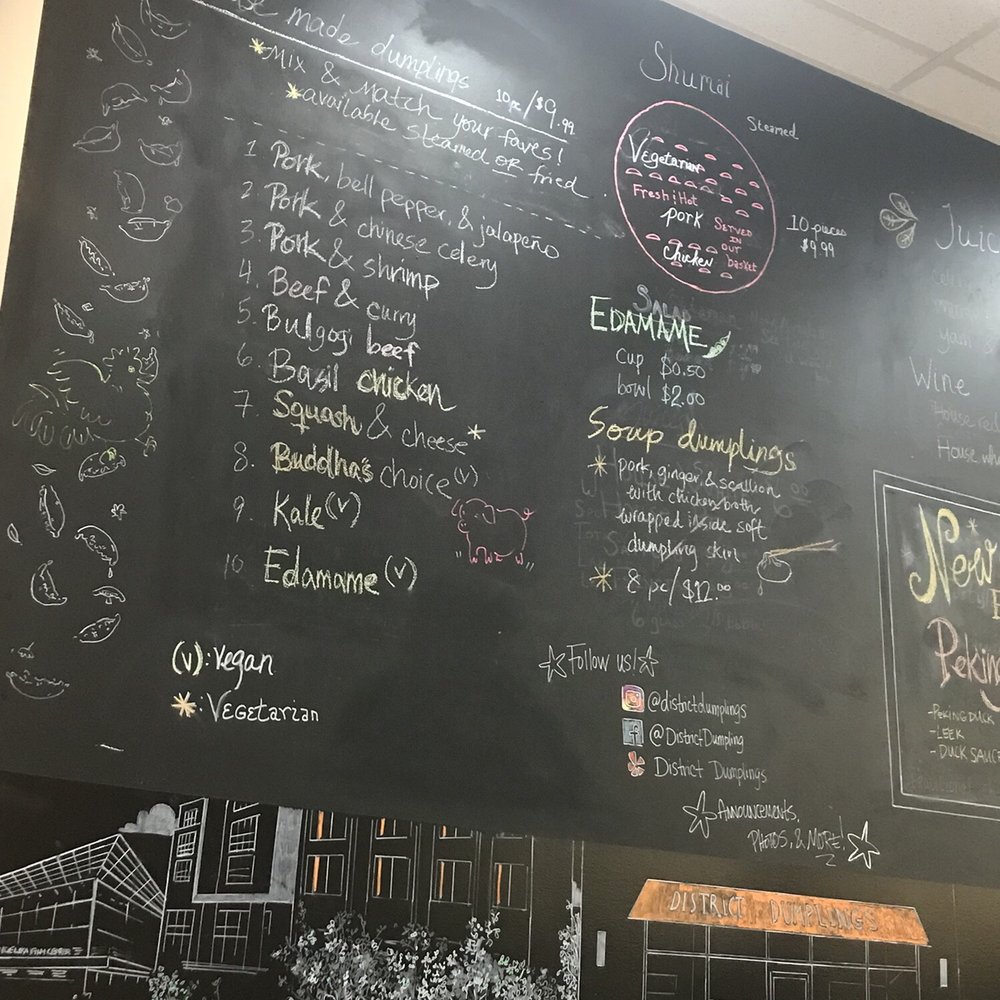 made dumplings 10pc/$9.99
*Mix & Match your faves!
*available steamed OR fried
1 Pork, bell pepper, & jalapeño
2 Pork & chinese celery
3. Pork & shrimp
4. Beef & curry
5. Bulgogi beef
6 Basil chicken
7. Squash & cheese*
8. Buddha's choice (v)
9. Kale (v)
10 Edamame (v)
(v): Vegan
*: VEGETARIAN
Shumai
Steamed
Vegetarian
Fresh & Hot
pork
SERVED
IN
OUR
basket
chicken
10 pieces
$9.99
SALAD
EDAMAME
cup $0.50
bowl $2.00
Soup dumplings
* pork, ginger, & scallion
with chicken broth,
wrapped inside soft
dumpling skin
* 8 pc/$12.00
Follow us!
@districtdumplings
@DistrictDumpling
District Dumplings
ANNOUNCEMENTS,
PHOTOS, & MORE!
Juic
Wine
House red
House wh
New
Peking
-PEKING DUCK
-LEEK
-DUCK SAUC
DISTRICT DUMPLINGS